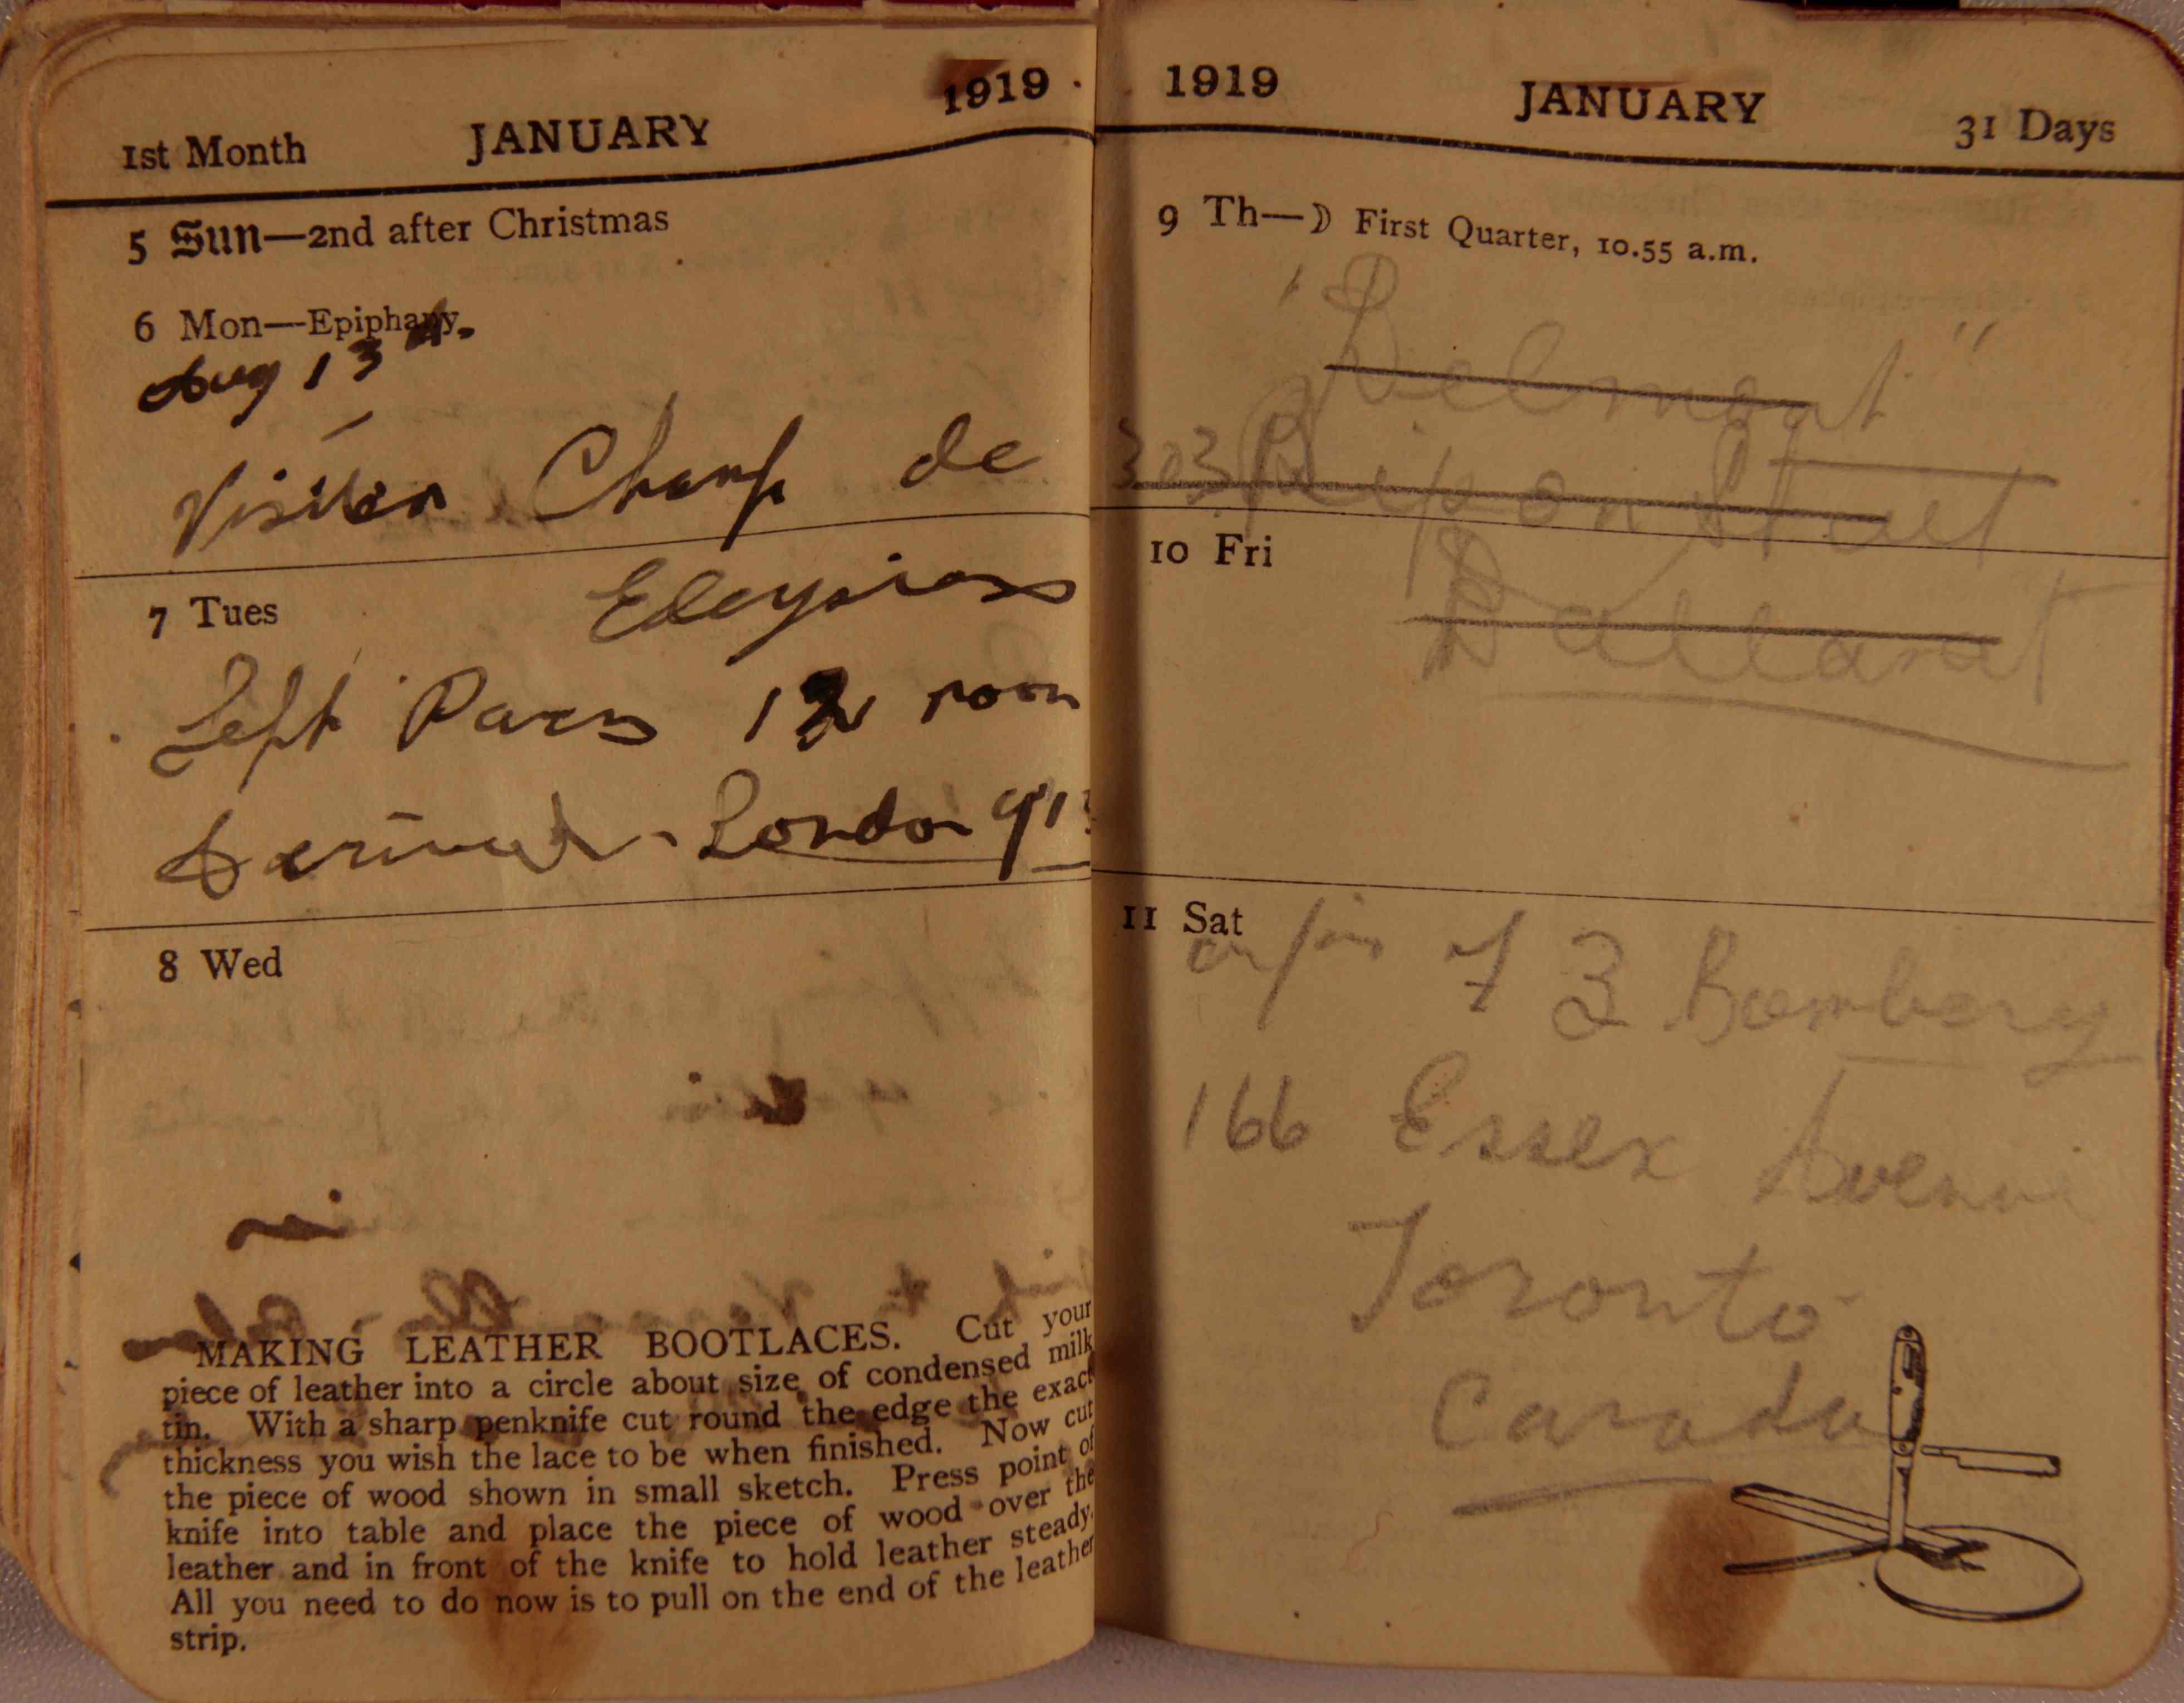 1st Month JANUARY 1919
5 Sun—2nd after Christmas
6 Mon—Epiphany.
Aug 13th.
Visited Champ de
7 Tues Eleysiass
Left Paris 12 noon
Arrived London 9.1
8 Wed
MAKING LEATHER BOOTLACES. Cut your
piece of leather into a circle about size of condensed milk
tin. With a sharp penknife cut round the edge the exact
thickness you wish the lace to be when finished. Now cut
the piece of wood shown in small sketch. Press point of
knife into table and place the piece of wood over the
leather and in front of the knife to hold leather steady.
All you need to do now is to pull on the end of the leather
strip.
1919 JANUARY 31 Days
9 Th—☽ First Quarter, 10.55 a.m.
"Delmont"
303 Ripon Street
10 Fri
Ballarat
11 Sat
of 3
166 Essex Avenue
Toronto
Canada